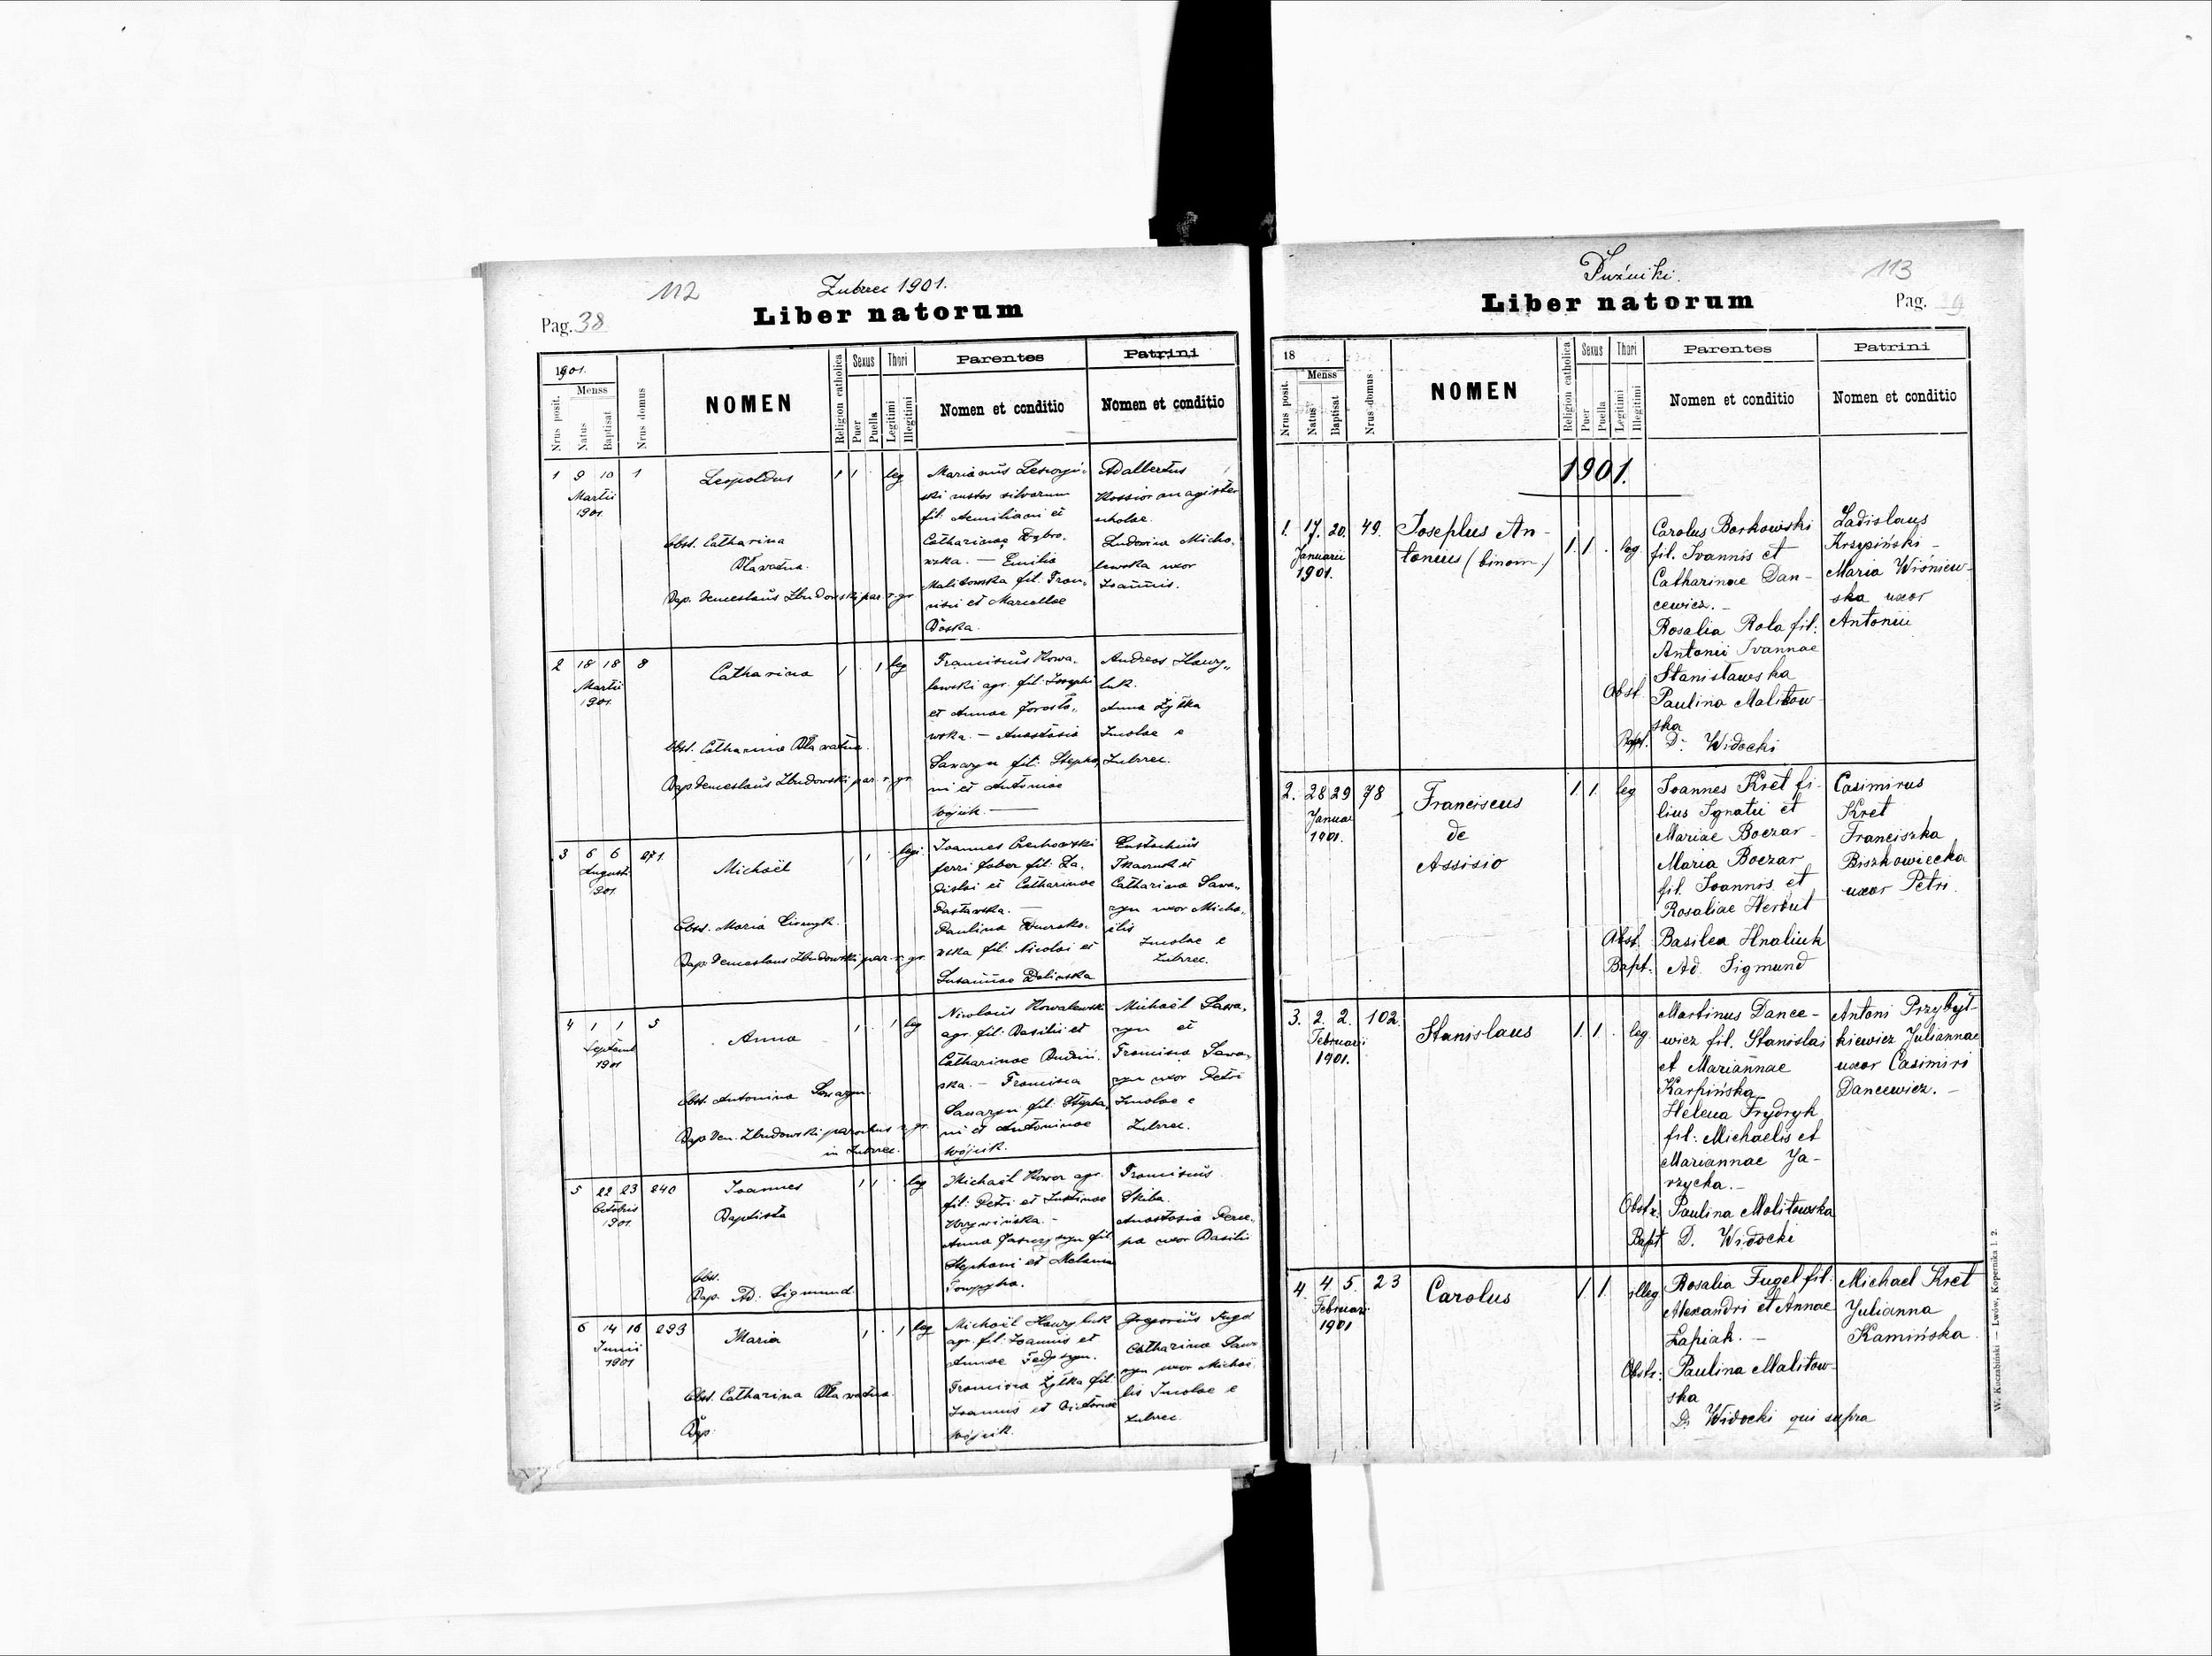 112
Zubrzec 1901.
Pag. 38
Liber natorum
1901.
Menss
Nrus posit.
Natus
Baptisat
Nrus domus
NOMEN
Religion catholica
Sexus
Puer
Puella
Thori
Legitimi
Illegitimi
Parentes
Nomen et conditio
Patrini
Nomen et conditio
1 9 10 1
Martii
1901.
Leopoldus
1 1 leg
Obst. Catharina
Bap. Zbudowski par. r. gr.
Marianus
custos silvarum
fil: Aemiliani et
Catharinae Dybro-
wska. — Emilia
Malitowska fil: Fran-
et Marcellae
Adalbertus
Kossior magister
scholae.
Ludovica Micha-
lewska uxor
Joannis.
2 18 18 8
Martii
1901.
Catharina
1 . 1 leg
Obst. Catharina
Bap. Zbudowski par. r. gr.
Franciscus Kowa-
lewski agr. fil: Josephi
et Annae
wska. — Anastasia
fil: Stepha-
ni et Antoninae
Wójcik. —
Andreas Hawry-
luk.
Anna Żytka
Incolae e
Zubrzec.
3 6 6 271
Augusti
1901.
Michaël
1 1 . legi
Obst. Maria
Bap. Zbudowski par. r. gr.
Joannes
ferri faber fil: La-
dislai et Catharinae
Paulina
wska fil: Nicolai et
Susannae
Eustachius
et
Catharina Sawa-
ryn uxor Micha-
ëlis
Incolae e
Zubrzec.
4 1 1 5
Septemb
1901
Anna
1 . 1 leg
Obst. Antonina Sawaryn.
Bap. Zbudowski parochus r. gr.
in Zubrzec.
Nicolaus Kowalewski
agr. fil: Basilii et
Catharinae
ska. — Francisca
Sawaryn fil: Stepha-
ni et Antoninae
Wójcik.
Michaël Sawa-
ryn et
Francisca Sawa-
ryn uxor Petri
Incolae e
Zubrzec.
5 22 23 240
Octobris
1901.
Joannes
Baptista
1 1 . leg
Obst.
Bap. Ad. Sigmund.
Michaël agr.
fil: Petri et Justinae
Anna fil
Stephani et Melania
Franciscus
Skiba.
Anastasia
uxor Basilii
6 14 16 293
Junii
1901
Maria
1 . 1 leg
Obst. Catharina
Bap.
Michaël Hawryluk
agr. fil: Joannis et
Annae
Francisca Żytka fil:
Joannis et Victoriae
Wójcik.
Gregorius
Catharina Sawa-
ryn uxor Michaë-
lis Incolae e
Zubrzec.
Puźniki.
113
Liber natorum
Pag.
18
Menss
Nrus posit.
Natus
Baptisat
Nrus domus
NOMEN
Religion catholica
Sexus
Puer
Puella
Thori
Legitimi
Illegitimi
Parentes
Nomen et conditio
Patrini
Nomen et conditio
1901.
1. 17. 20. 49.
Januarii
1901.
Josephus An-
tonius (binom.)
1. 1 . leg.
Carolus Borkowski
fil. Joannis et
Catharinae Dan-
cewicz. —
Rosalia Rola fil:
Antonii Joannae
Stanisławska
Obst. Paulina Malitow-
ska
Bapt. D. Widocki
Ladislaus
Krzypiński —
Maria Wiśniew-
ska uxor
Antonii
2. 28 29 78
Januar
1901.
Franciscus
de
Assisio
1 1. leg
Joannes Kret fi-
lius Ignatii et
Mariae Boczar —
Maria Boczar
fil. Joannis et
Rosaliae Herbut
Obst. Basilea Hnaliuk
Bapt. Ad. Sigmund
Casimirus
Kret
Franciszka
Biszkowiecka
uxor Petri.
3. 2. 2. 102.
Februarii
1901.
Stanislaus
1 1. . leg.
Martinus Dance-
wicz fil. Stanislai
et Mariannae
Karpińska
Helena Frydryk
fil: Michaelis et
Mariannae Ja-
rzycka. —
Obstr. Paulina Malitowska
Bapt. D. Widocki
Antoni Przybył-
kiewicz Juliannae
uxor Casimiri
Dancewicz. —
4. 4 5. 23
Februari
1901
Carolus
1 1. illeg
Rosalia Fugel fil:
Alexandri et Annae
Łapiak. —
Obstr: Paulina Malitow-
ska
D. Widocki qui supra
Michael Kret
Julianna
Kamińska.
W. Kuczabiński — Lwów, Kopernika l. 2.